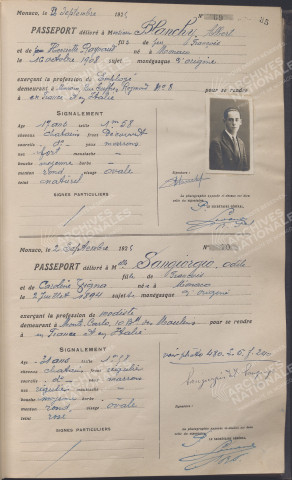 45
Monaco, le 2 Septembre 192
N° 69
PASSEPORT délivré à Monsieur Blanchy Albert
fils de Jean François
et de Henriette
né à Monaco
le 15 octobre 1908 sujet monégasque d'origine
exerçant la profession de Employé
demeurant à Monaco, Rue N° 8 pour se rendre
en France et en Italie
SIGNALEMENT
âge 17 ans taille 1m 68
cheveux chatains front découvert
sourcils d° yeux marrons
nez fort moustache —
bouche moyenne barbe —
menton rond visage ovale
teint naturel
SIGNES PARTICULIERS
Signature :
La photographie apposée ci-dessus est bien
celle du requérant.
P. LE SECRÉTAIRE GÉNÉRAL,
Monaco, le 2 Septembre 192
N° 70
PASSEPORT délivré à Mlle Sangiorgio Odile
fille de François
et de Caroline
née à Monaco
le 2 juillet 1894 sujette monégasque d'origine
exerçant la profession de modiste
demeurant à Monte Carlo, 10 Bd des Moulins pour se rendre
en France et en Italie
SIGNALEMENT
âge 31 ans taille
cheveux chatains front régulier
sourcils d° yeux marrons
nez régulier moustache —
bouche moyenne barbe —
menton rond visage ovale
teint rosé
SIGNES PARTICULIERS
voir photo
Signature :
La photographie apposée ci-dessus est bien
celle du requérant.
P. LE SECRÉTAIRE GÉNÉRAL,
ARCHIVES
NATIONALES